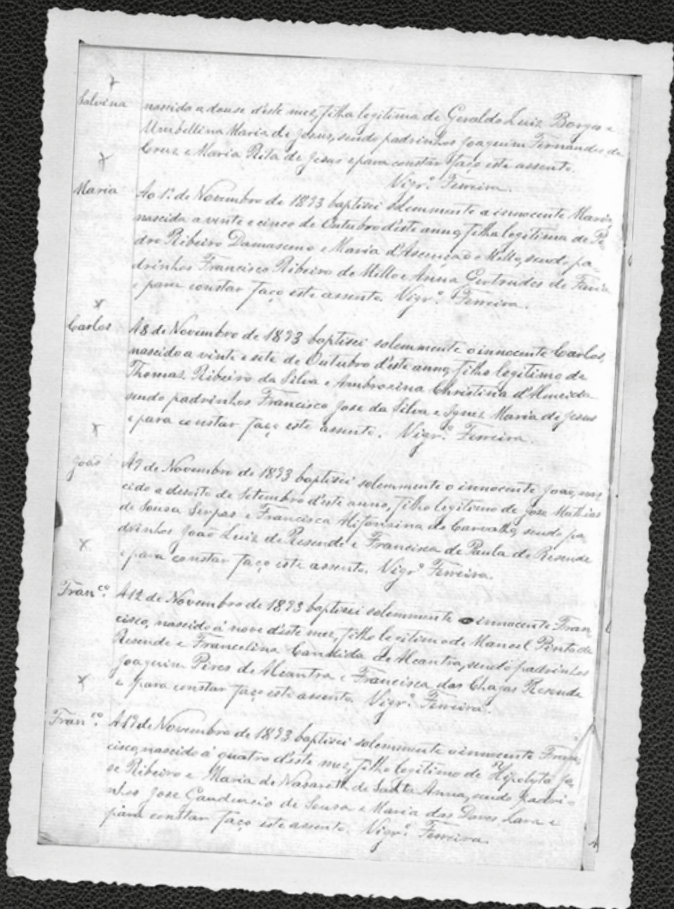 Balvina nascida a douse d'este mez, filha legitima de Geraldo Luiz Borges e
Umbellina Maria de Jesus, sendo padrinhos Joaquim Fernandes da
Cruz e Maria Rita de Jesus e para constar faço este assento.
Vigr.º Ferreira.
Maria Ao 1.º de Novembro de 1893 baptizei solemmente a innocente Maria
nascida a vinte e cinco de Outubro d'este anno, filha legitima de Pe
dro Ribeiro Damasceno e Maria d'Assenção e Mello, sendo pa-
drinhos Francisco Ribeiro de Mello e Anna Gertrudes de
e para constar faço este assento. Vigr.º Ferreira.
Carlos A 8 de Novembro de 1893 baptizei solemmente o innocente Carlos,
nascido a vinte e sete de Outubro d'este anno, filho legitimo de
Thomaz Ribeiro da Silva e Ambrosina Christina d'Almeida
sendo padrinhos Francisco Jose da Silva e Ignez Maria de Jesus
e para constar faço este assento. Vigr.º Ferreira.
João A 9 de Novembro de 1893 baptizei solemmente o innocente João, nas
cido a desoito de Setembro d'este anno, filho legitimo de Jose Mathias
de Sousa Serpas e Francisca de Carvalho, sendo pa
drinhos João Luiz de Resende e Francisca de Paula de Resende
e para constar faço este assento. Vigr.º Ferreira.
Fran.co A 12 de Novembro de 1893 baptizei solemmente o innocente Fran
cisco, nascido á nove d'este mez, filho legitimo de Manoel Pinto de
Resende e Francelina Candida de Alcantra, sendo padrinhos
Joaquim Pires de Alcantra e Francisca das Chagas Resende
e para constar faço este assento. Vigr.º Ferreira.
Fran.co A 19 de Novembro de 1893 baptizei solemmente o innocente Fran
cisco, nascido á quatro d'este mez, filho legitimo de Hipolyto Jo
se Ribeiro e Maria de Nazareth de Santa Anna, sendo padri
nhos Jose Gaudencio de Sousa e Maria das Dores Lara e
para constar faço este assento. Vigr.º Ferreira.